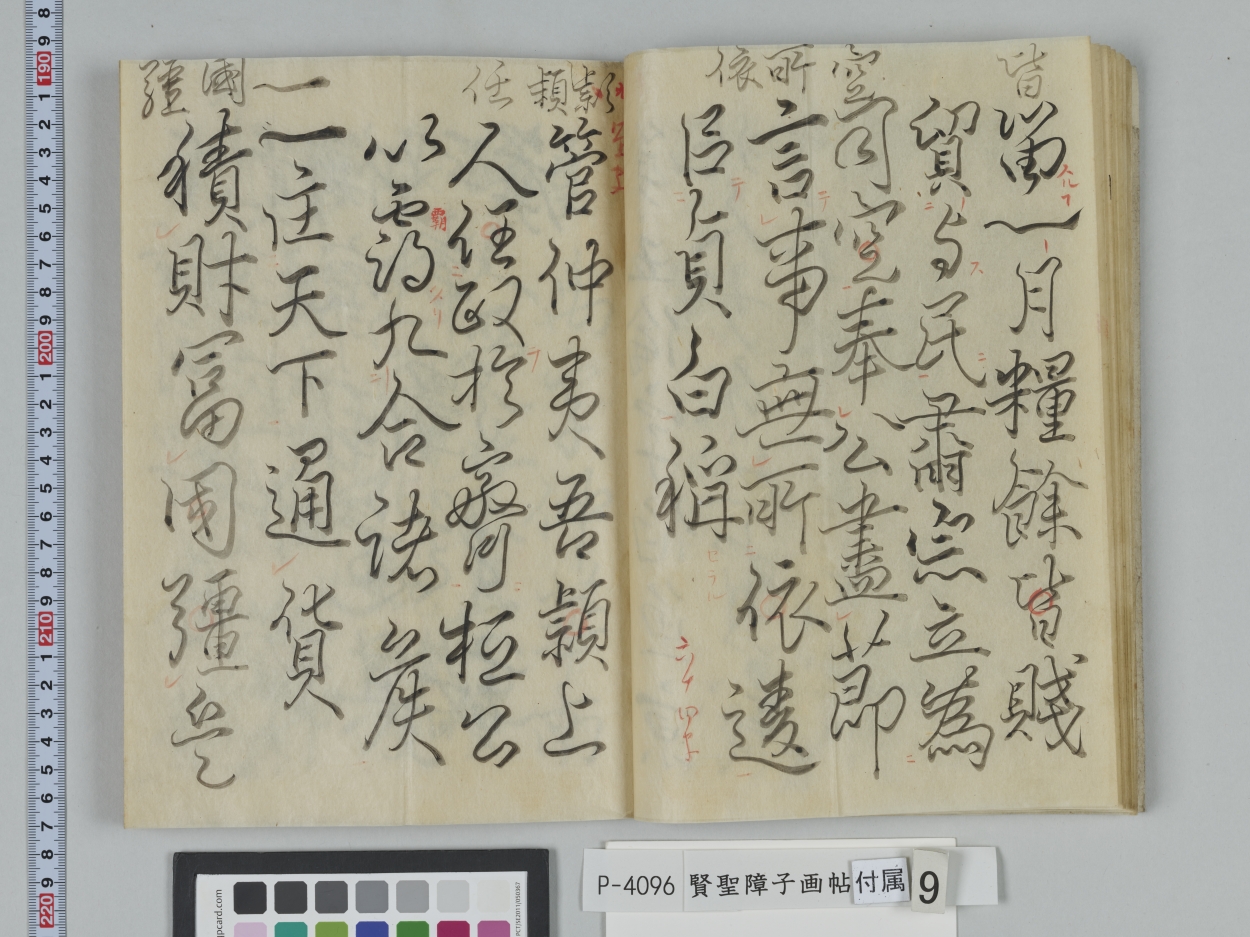 皆
空
所
依
留一月糧餘皆賤
貿与民肅宗立為
司空奉公盡節
言事無所依違
㠯貞白稱
穎
任
一
國
彊
管仲夷吾穎上
人任政於齊桓公
以霸九合諸侯
覇
一匡天下通貨
積財富国彊兵
P-4096 賢聖障子画帖 付属 9